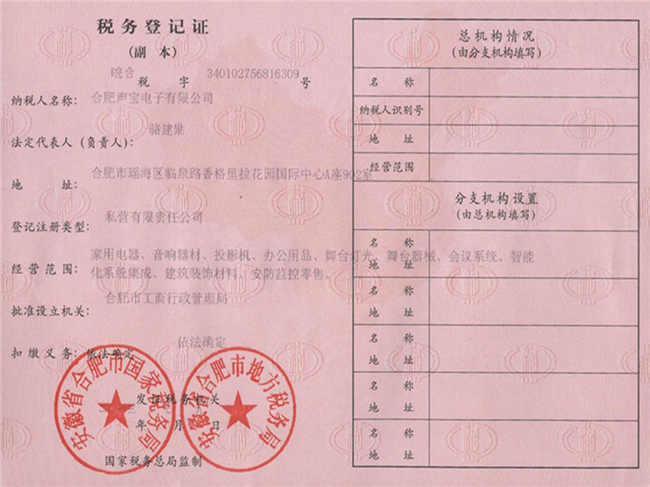 税务登记证
(副 本)
皖合 税 字 340102756816309 号
纳税人名称： 合肥声宝电子有限公司
法定代表人（负责人）： 骆建勋
地 址： 合肥市瑶海区临泉路香格里拉花园国际中心A座902室
登记注册类型： 私营有限责任公司
经营范围： 家用电器、音响器材、投影机、办公用品、舞台灯光、舞台器械、会议系统、智能
化系统集成、建筑装饰材料、安防监控零售。
批准设立机关： 合肥市工商行政管理局
依法确定
扣缴义务： 依法确定
安徽省合肥市国家税务局
安徽省合肥市地方税务局
发证税务机关
年 月 日
国家税务总局监制
总机构情况
(由分支机构填写)
名 称
纳税人识别号
地 址
经营范围
分支机构设置
(由总机构填写)
名 称
地 址
名 称
地 址
名 称
地 址
名 称
地 址
名 称
地 址